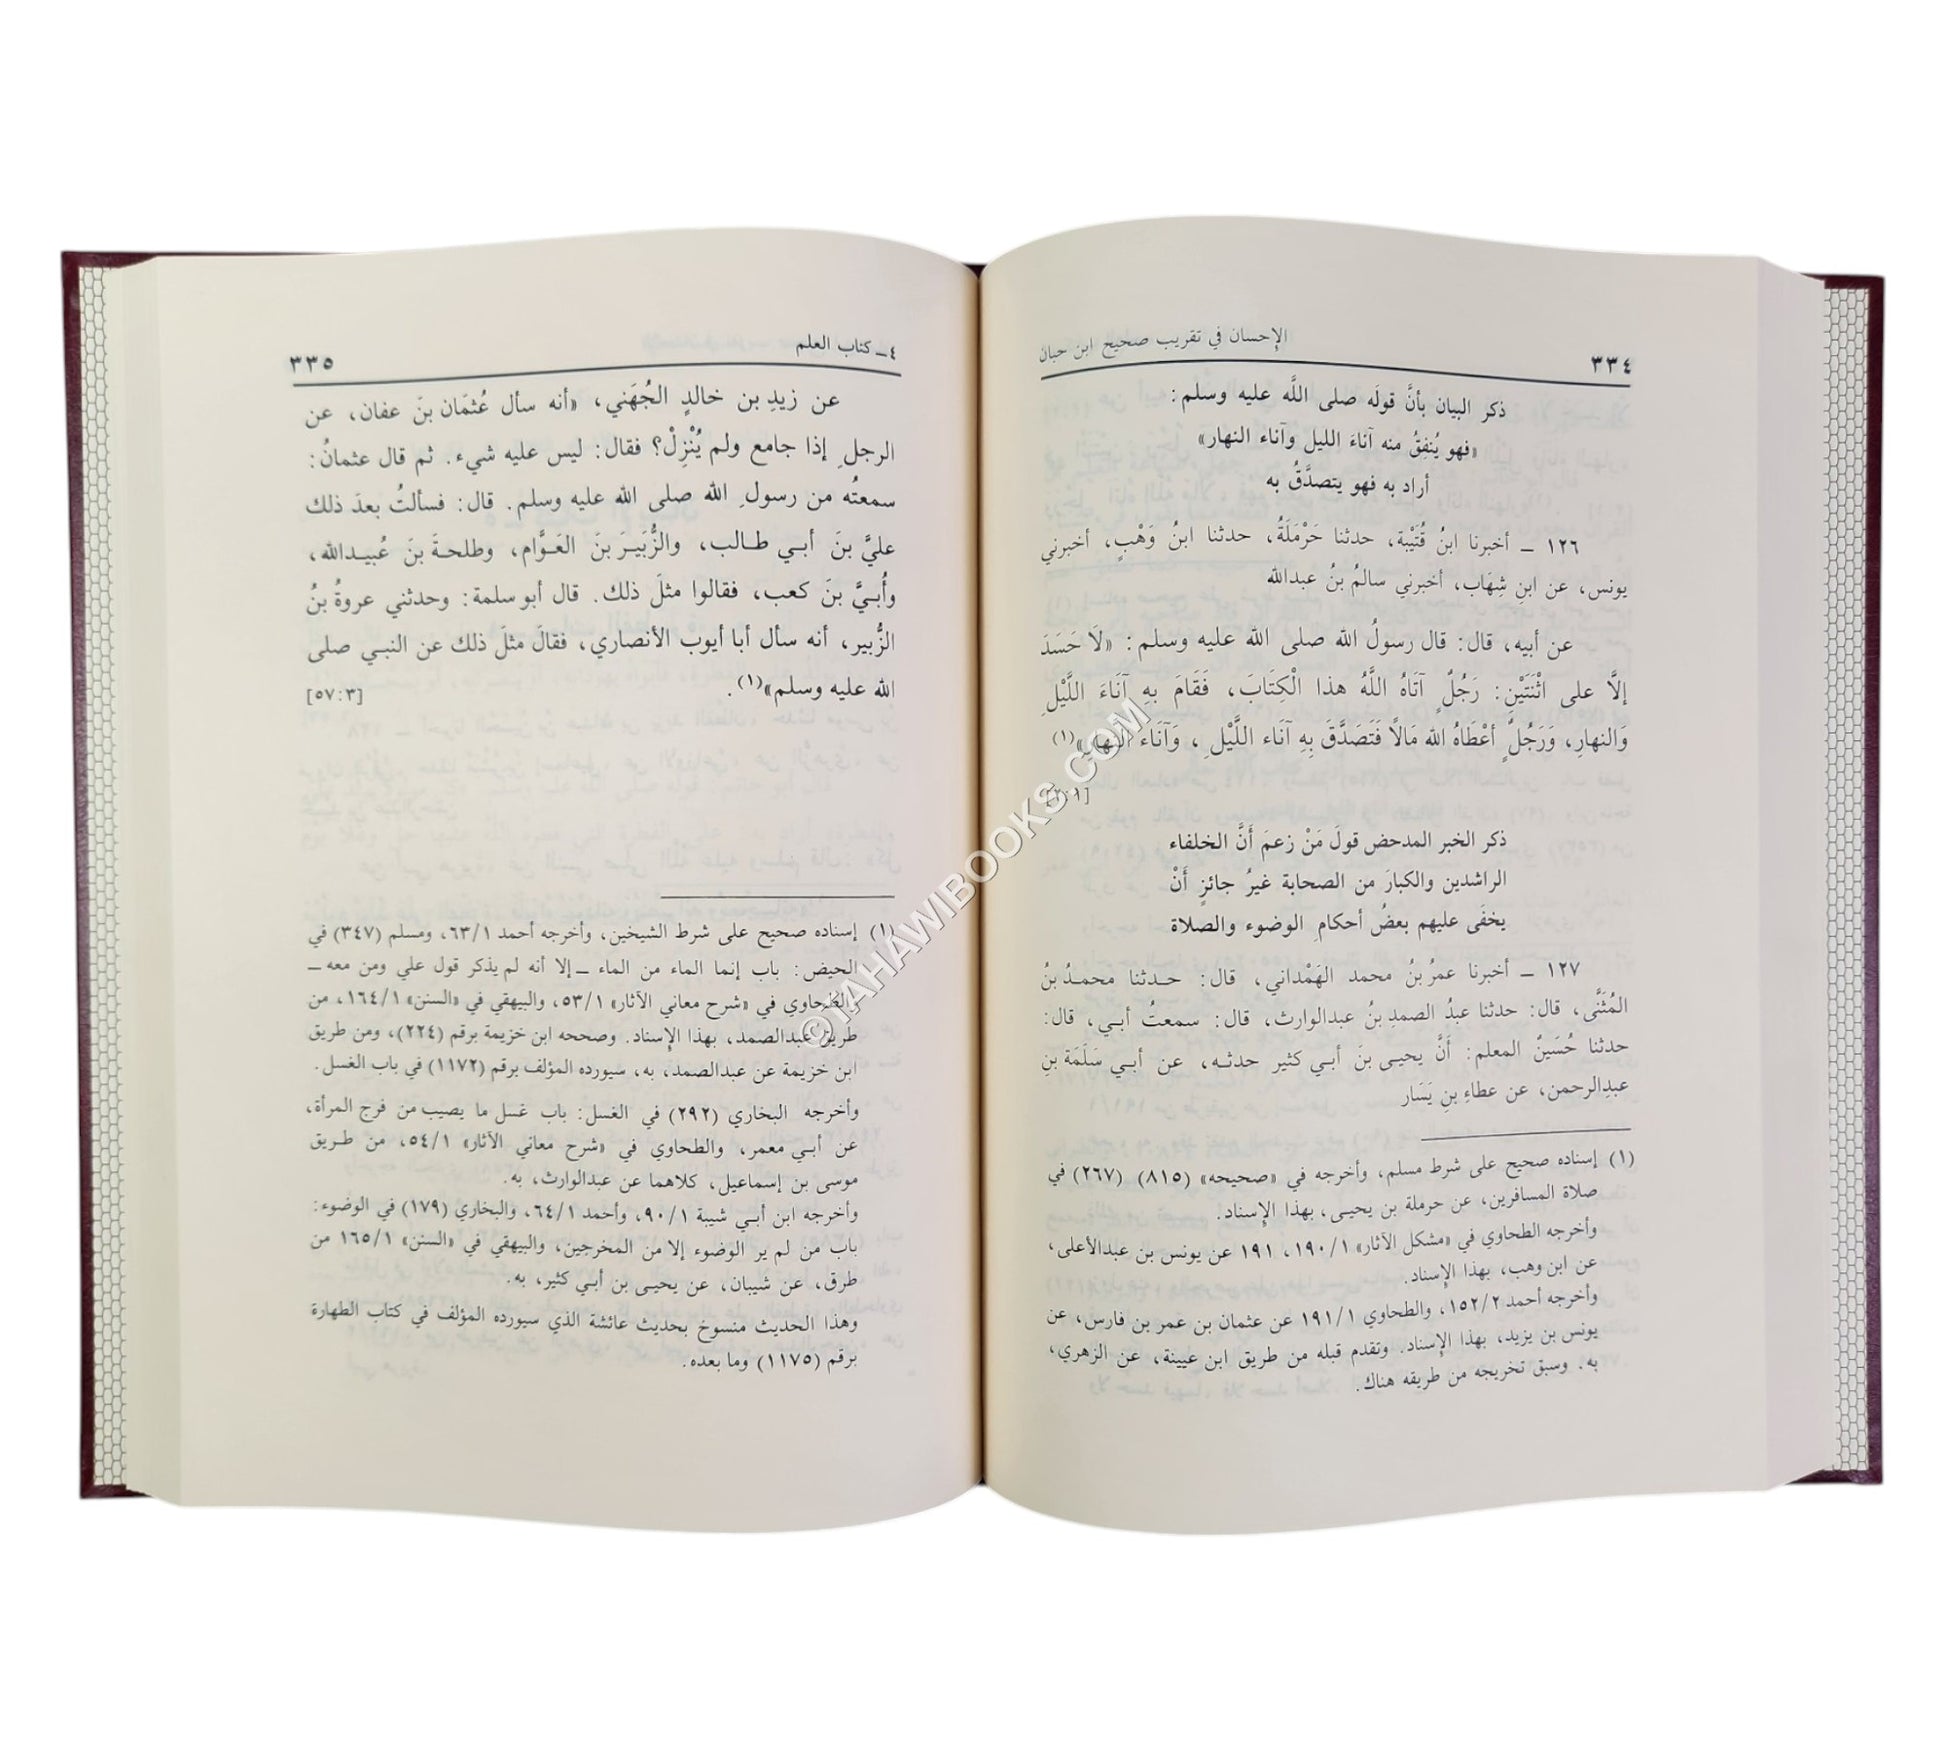 الإحسان في تقريب صحيح ابن حبان
٣٣٤
ذكر البيان بأنَّ قولَه صلى اللَّه عليه وسلم:
«فهو يُنفِقُ منه آناءَ الليل وآناء النهار»
أراد به فهو يتصدَّقُ به
١٢٦ ــ أخبرنا ابنُ قُتَيْبة، حدثنا حَرْمَلَةُ، حدثنا ابنُ وَهْبٍ، أخبرني
يونس، عن ابنِ شِهَاب، أخبرني سالمُ بنُ عبدالله
عن أبيه، قال: قال رسولُ الله صلى الله عليه وسلم: «لَا حَسَدَ
إلَّا على اثْنَتَيْنِ: رَجُلٌ آتَاهُ اللَّهُ هذا الْكِتَابَ، فَقَامَ بِهِ آنَاءَ اللَّيْلِ
وَالنهارِ، وَرَجُلٌ أعْطَاهُ الله مَالًا فَتَصَدَّقَ بِهِ آنَاء اللَّيْلِ، وَآنَاء النهارِ»(١)
[٢:١]
ذكر الخبر المدحض قولَ مَنْ زعمَ أَنَّ الخلفاء
الراشدين والكبارَ من الصحابة غيرُ جائزٍ أَنْ
يخفَى عليهم بعضُ أحكامِ الوضوء والصلاة
١٢٧ ــ أخبرنا عمرُ بنُ محمد الهَمْداني، قال: حدثنا محمدُ بنُ
المُثَنَّى، قال: حدثنا عبدُ الصمدِ بنُ عبدالوارث، قال: سمعتُ أبي، قال:
حدثنا حُسَينٌ المعلم: أَنَّ يحيى بنَ أبي كثير حدثه، عن أبي سَلَمَة بنِ
عبدِالرحمن، عن عطاءِ بنِ يَسَار
(١) إسناده صحيح على شرط مسلم، وأخرجه في «صحيحه» (٨١٥) (٢٦٧) في
صلاة المسافرين، عن حرملة بن يحيى، بهذا الإسناد.
وأخرجه الطحاوي في «مشكل الآثار» ١٩٠/١، ١٩١ عن يونس بن عبدالأعلى،
عن ابن وهب، بهذا الإسناد.
وأخرجه أحمد ١٥٢/٢، والطحاوي ١٩١/١ عن عثمان بن عمر بن فارس، عن
يونس بن يزيد، بهذا الإسناد. وتقدم قبله من طريق ابن عيينة، عن الزهري،
به. وسبق تخريجه من طريقه هناك.
٤ــ كتاب العلم
٣٣٥
عن زيدِ بن خالدٍ الجُهَني، «أنه سأل عُثمَان بنَ عفان، عن
الرجلِ إذا جامع ولم يُنْزِلْ؟ فقال: ليس عليه شيء. ثم قال عثمانُ:
سمعتُه من رسولِ الله صلى الله عليه وسلم. قال: فسألتُ بعدَ ذلك
عليَّ بنَ أبي طالب، والزُّبَيرَ بنَ العَوَّام، وطلحةَ بنَ عُبيدالله،
وأُبيَّ بنَ كعب، فقالوا مثلَ ذلك. قال أبو سلمة: وحدثني عروةُ بنُ
الزُّبير، أنه سأل أبا أيوب الأنصاري، فقالَ مثلَ ذلك عن النبي صلى
الله عليه وسلم»(١).
[٥٧:٣]
(١) إسناده صحيح على شرط الشيخين، وأخرجه أحمد ٦٣/١، ومسلم (٣٤٧) في
الحيض: باب إنما الماء من الماء ــ إلا أنه لم يذكر قول علي ومن معه ــ
والطحاوي في «شرح معاني الآثار» ٥٣/١، والبيهقي في «السنن» ١٦٤/١، من
طريق عبدالصمد، بهذا الإسناد. وصححه ابن خزيمة برقم (٢٢٤)، ومن طريق
ابن خزيمة عن عبدالصمد، به، سيورده المؤلف برقم (١١٧٢) في باب الغسل.
وأخرجه البخاري (٢٩٢) في الغسل: باب غسل ما يصيب من فرج المرأة،
عن أبي معمر، والطحاوي في «شرح معاني الآثار» ٥٤/١، من طريق
موسى بن إسماعيل، كلاهما عن عبدالوارث، به.
وأخرجه ابن أبي شيبة ٩٠/١، وأحمد ٦٤/١، والبخاري (١٧٩) في الوضوء:
باب من لم ير الوضوء إلا من المخرجين، والبيهقي في «السنن» ١٦٥/١ من
طرق، عن شيبان، عن يحيى بن أبي كثير، به.
وهذا الحديث منسوخ بحديث عائشة الذي سيورده المؤلف في كتاب الطهارة
برقم (١١٧٥) وما بعده.
©TAHAWIBOOKS.COM